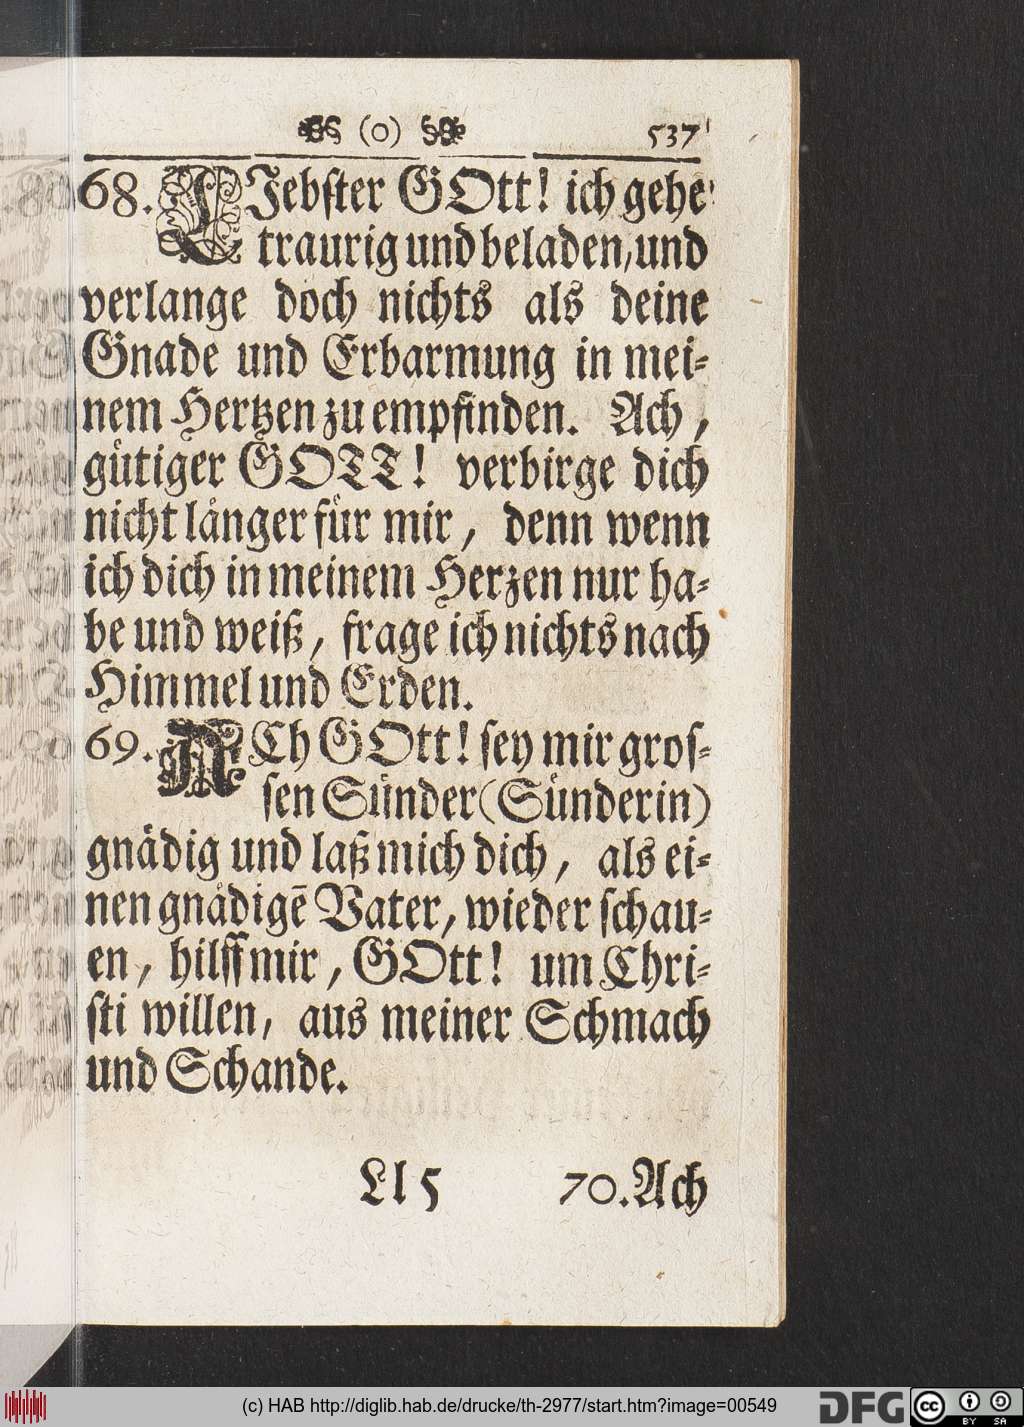 (0) 537
68. LJebſter GOtt! ich gehe
traurig und beladen, und
verlange doch nichts als deine
Gnade und Erbarmung in mei⸗
nem Hertzen zu empfinden. Ach,
guͤtiger GOTT! verbirge dich
nicht laͤnger fuͤr mir, denn wenn
ich dich in meinem Herzen nur ha⸗
be und weiß, frage ich nichts nach
Himmel und Erden.
69. ACh GOtt! ſey mir groſ⸗
ſen Suͤnder (Suͤnderin)
gnaͤdig und laß mich dich, als ei⸗
nen gnaͤdigē Vater, wieder ſchau⸗
en, hilff mir, GOtt! um Chri⸗
ſti willen, aus meiner Schmach
und Schande.
Ll 5 70. Ach
(c) HAB http://diglib.hab.de/drucke/th-2977/start.htm?image=00549
DFG
cc BY SA